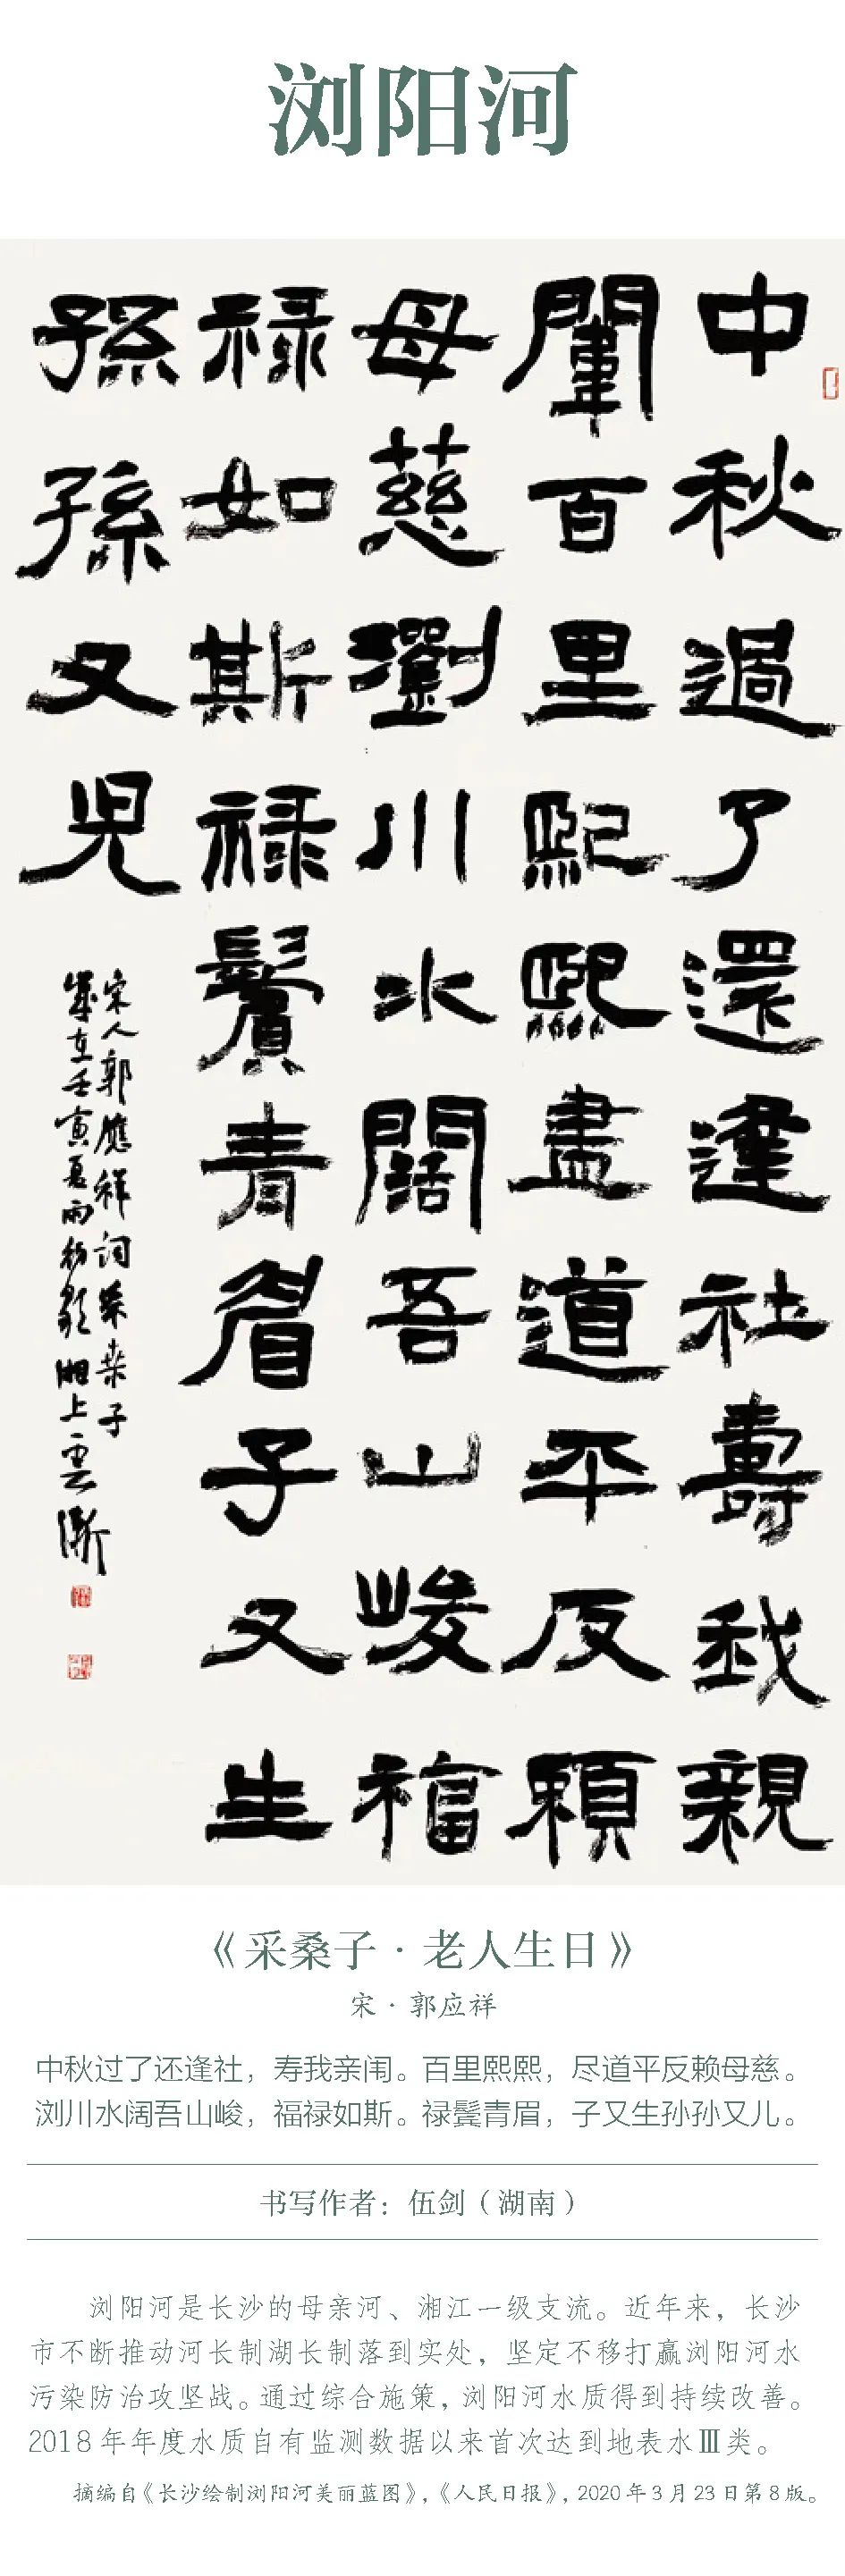 浏阳河
中秋過了還逢社壽我親
闈百里熙熙盡道平反賴
母慈瀏川水闊吾山峻福
禄如斯禄鬢青眉子又生
孫孫又兒
宋人郭應祥詞采桑子
歲在壬寅夏雨初歇湘上雲漸
《采桑子·老人生日》
宋·郭应祥
中秋过了还逢社，寿我亲闱。百里熙熙，尽道平反赖母慈。
浏川水阔吾山峻，福禄如斯。禄鬓青眉，子又生孙孙又儿。
书写作者：伍剑（湖南）
浏阳河是长沙的母亲河、湘江一级支流。近年来，长沙
市不断推动河长制湖长制落到实处，坚定不移打赢浏阳河水
污染防治攻坚战。通过综合施策，浏阳河水质得到持续改善。
2018年年度水质自有监测数据以来首次达到地表水Ⅲ类。
摘编自《长沙绘制浏阳河美丽蓝图》，《人民日报》，2020年3月23日第8版。